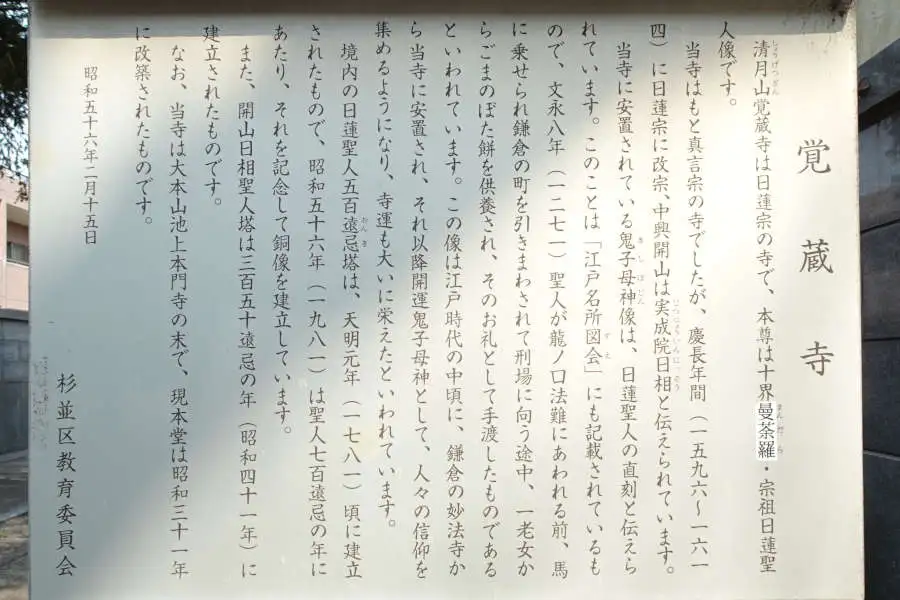 覚蔵寺
清月山覚蔵寺は日蓮宗の寺で、本尊は十界曼荼羅・宗祖日蓮聖
人像です。
当寺はもと真言宗の寺でしたが、慶長年間（一五九六〜一六一
四）に日蓮宗に改宗、中興開山は実成院日相と伝えられています。
当寺に安置されている鬼子母神像は、日蓮聖人の直刻と伝えら
れています。このことは「江戸名所図会」にも記載されているも
ので、文永八年（一二七一）聖人が龍ノ口法難にあわれる前、馬
に乗せられ鎌倉の町を引きまわされて刑場に向う途中、一老女か
らごまのぼた餅を供養され、そのお礼として手渡したものである
といわれています。この像は江戸時代の中頃に、鎌倉の妙法寺か
ら当寺に安置され、それ以降開運鬼子母神として、人々の信仰を
集めるようになり、寺運も大いに栄えたといわれています。
境内の日蓮聖人五百遠忌塔は、天明元年（一七八一）頃に建立
されたもので、昭和五十六年（一九八一）は聖人七百遠忌の年に
あたり、それを記念して銅像を建立しています。
また、開山日相聖人塔は三百五十遠忌の年（昭和四十一年）に
建立されたものです。
なお、当寺は大本山池上本門寺の末で、現本堂は昭和三十一年
に改築されたものです。
昭和五十六年二月十五日
杉並区教育委員会